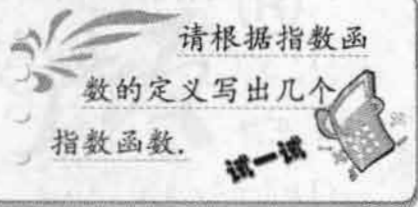 请根据指数函
数的定义写出几个
指数函数.
试一试